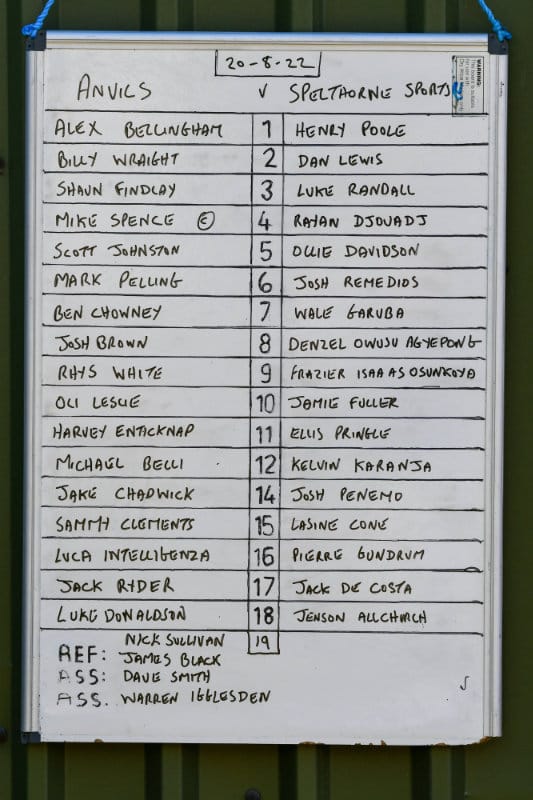 20-8-22
ANVILS V SPELTHORNE SPORTS
WARNING:
ALEX BELLINGHAM 1 HENRY POOLE
BILLY WRAIGHT 2 DAN LEWIS
SHAUN FINDLAY 3 LUKE RANDALL
MIKE SPENCE © 4 RAYAN DJOUADJ
SCOTT JOHNSTON 5 OLLIE DAVIDSON
MARK PELLING 6 JOSH REMEDIOS
BEN CHOWNEY 7 WALE GARUBA
JOSH BROWN 8 DENZEL OWUSU AGYEPONG
RHYS WHITE 9 FRAZIER ISAAAS OSUNKOYA
OLI LESLIE 10 JAMIE FULLER
HARVEY ENTACKNAP 11 ELLIS PRINGLE
MICHAEL BELLI 12 KELVIN KARANJA
JAKE CHADWICK 14 JOSH PENEMO
SAMMY CLEMENTS 15 LASINE CONE
LUCA INTELLIGENZA 16 PIERRE GUNDRUM
JACK RYDER 17 JACK DE COSTA
LUKE DONALDSON 18 JENSON ALLCHURCH
NICK SULLIVAN 19
REF: JAMES BLACK
ASS: DAVE SMITH
ASS. WARREN IGGLESDEN